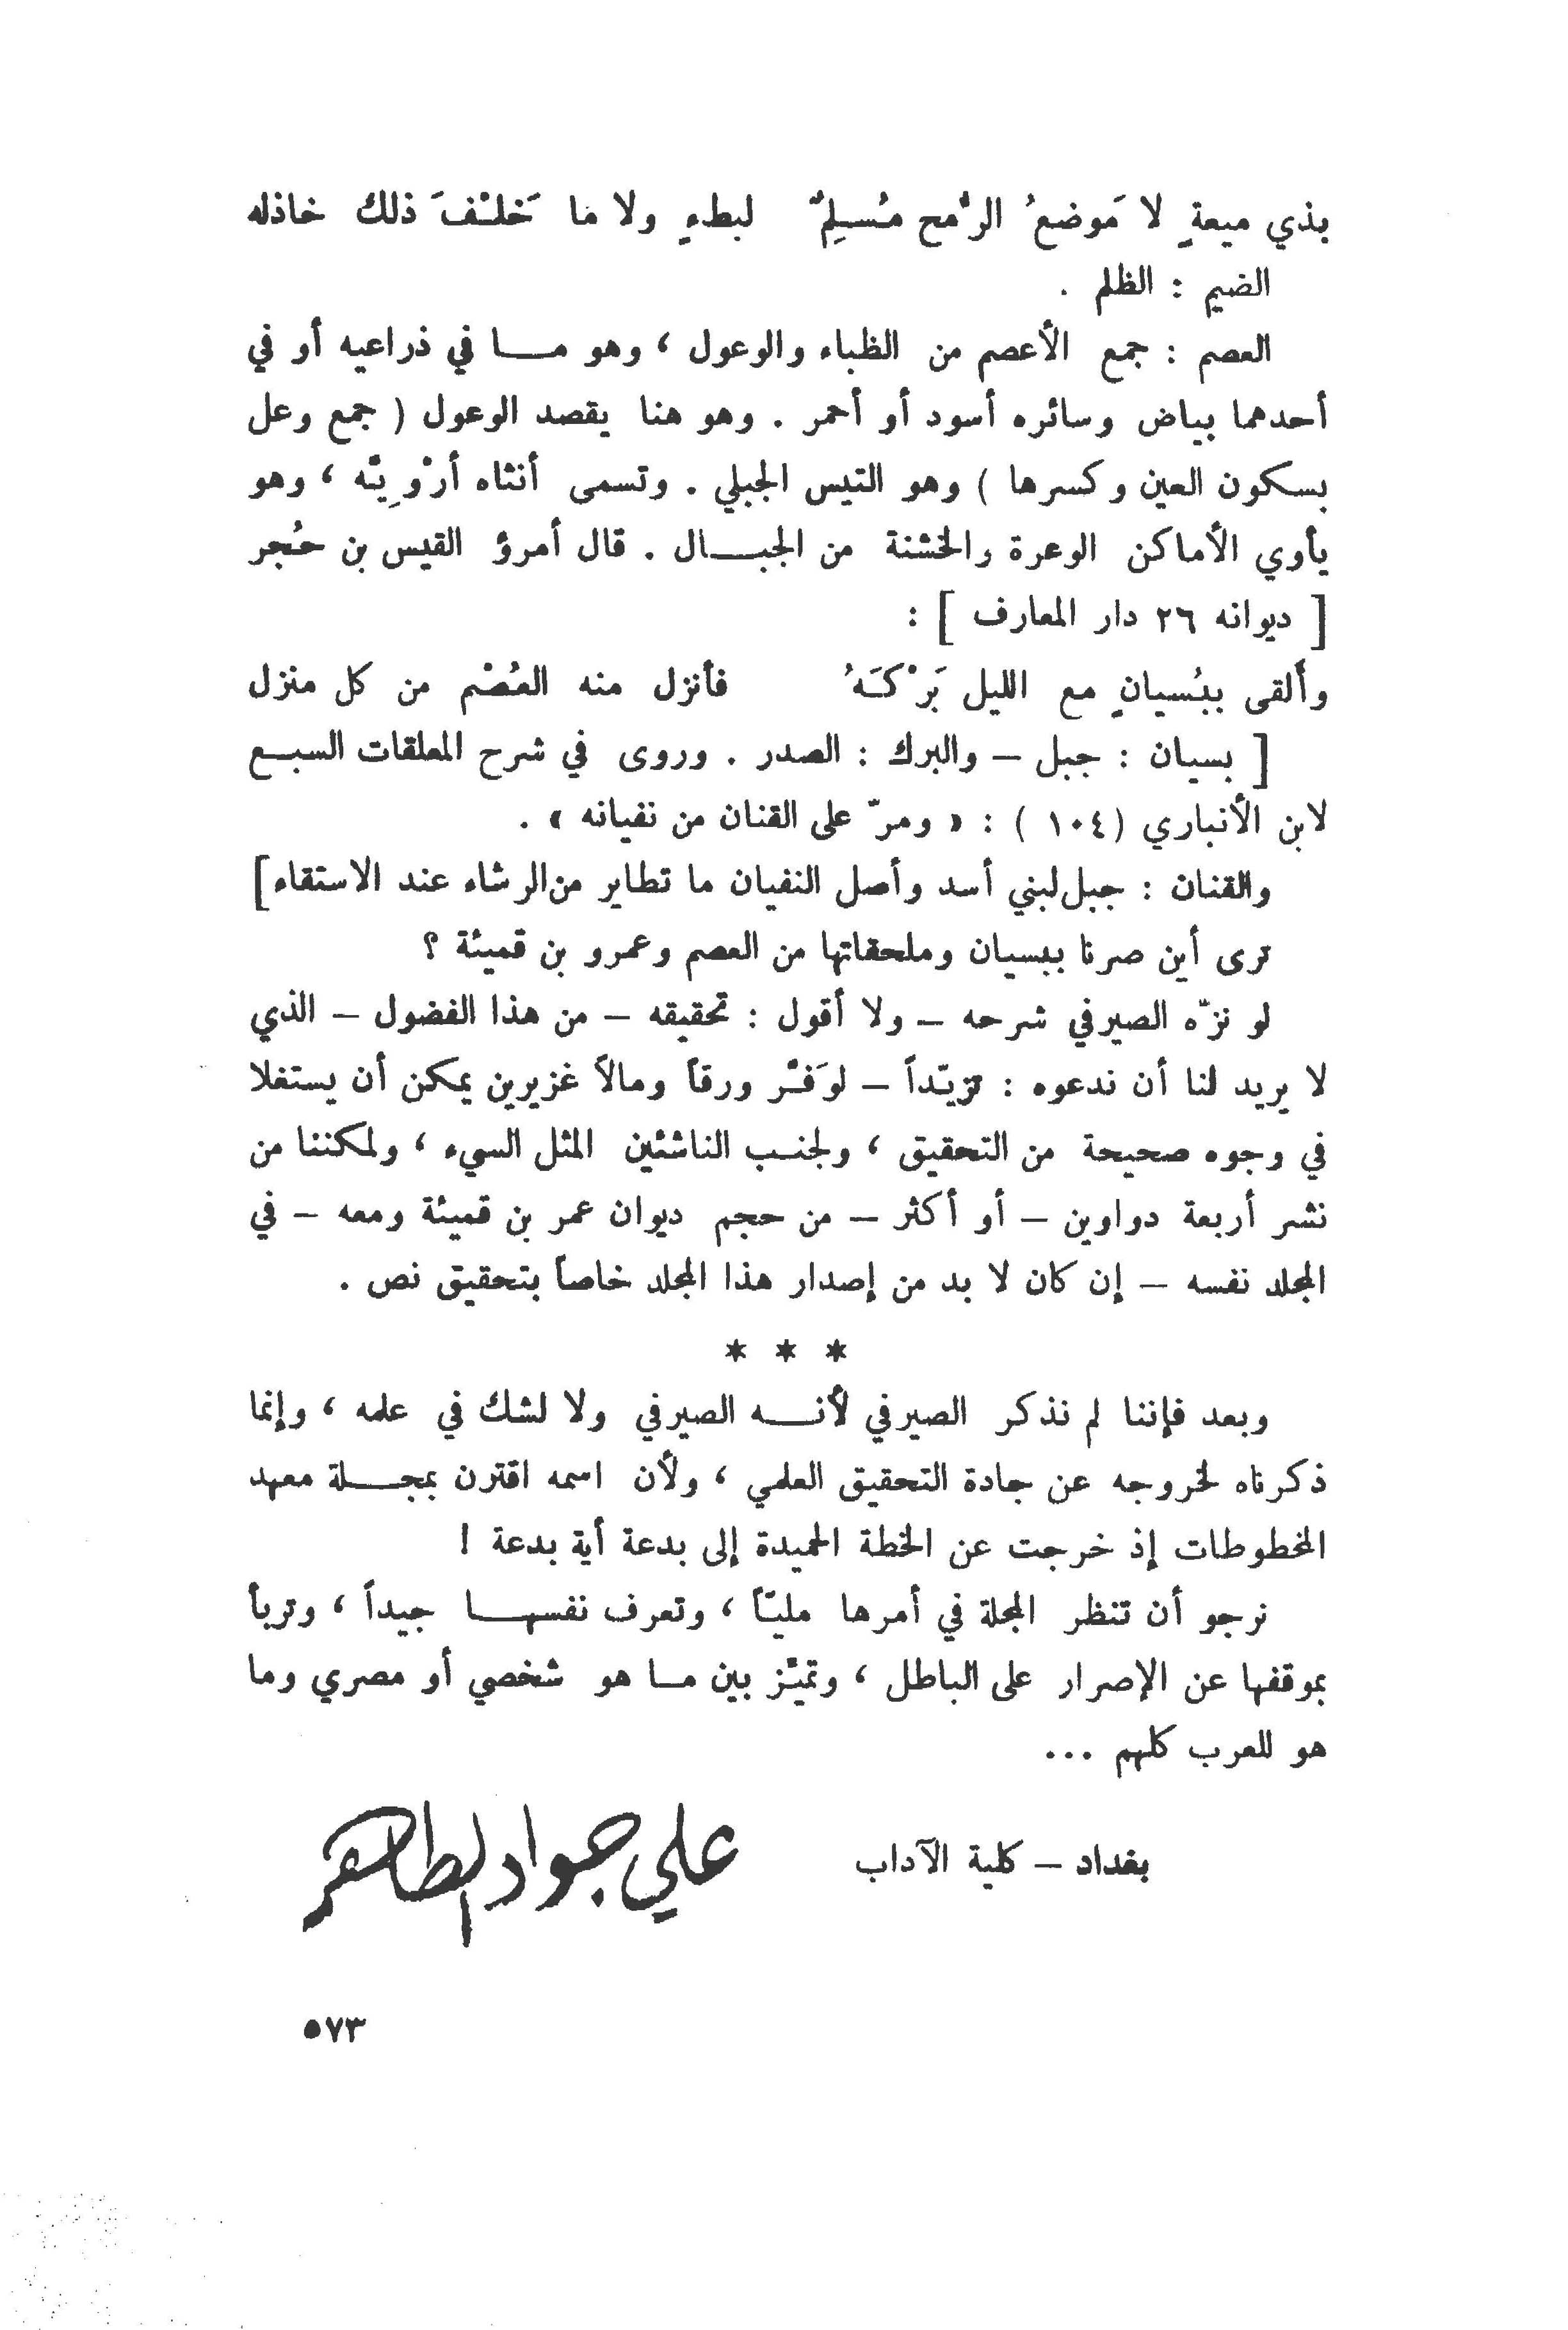 بذي ميعةٍ لا مَوضعُ الرُّمح مُسلِمٌ لبطءٍ ولا ما خَلْفَ ذلك خاذله
الضيم : الظلم .
العصم : جمع الأعصم من الظباء والوعول ، وهو مـــا في ذراعيه أو في
أحدهما بياض وسائره أسود أو أحمر . وهو هنا يقصد الوعول ( جمع وعل
بسكون العين وكسرها ) وهو التيس الجبلي . وتسمى أنثاه أرْوِيّه ، وهو
يأوي الأماكن الوعرة والخشنة من الجبـــال . قال أمرؤ القيس بن حُجر
[ ديوانه ٢٦ دار المعارف ] :
وأَلقى ببُسيانٍ مع الليل بَرْكَهُ فأنزل منه العُصْم من كل منزل
[ بسيان : جبل – والبرك : الصدر . وروى في شرح المعلقات السبـع
لابن الأنباري (١٠٤ ) : « ومرّ على القنان من نفيانه » .
والقنان : جبل لبني أسد وأصل النفيان ما تطاير من الرشاء عند الاستقاء]
ترى أين صرنا ببسيان وملحقاتها من العصم وعمرو بن قميئة ؟
لو نزّه الصيرفي شرحه – ولا أقول : تحقيقه – من هذا الفضول – الذي
لا يريد لنا أن ندعوه : تزيّداً – لوَفّر ورقاً ومالاً غزيرين يمكن أن يستغلا
في وجوه صحيحة من التحقيق ، ولجنـب الناشئين المثل السيء ، ولمكننا من
نشر أربعة دواوين – أو أكثر – من حجم ديوان عمر بن قميئة ومعه – في
المجلد نفسه – إن كان لا بد من إصدار هذا المجلد خاصاً بتحقيق نص .
* * *
وبعد فإننا لم نذكر الصيرفي لأنـــه الصيرفي ولا لشك في علمه ، وإنما
ذكرناه لخروجه عن جادة التحقيق العلمي ، ولأن اسمه اقترن بمجـــلة معهد
المخطوطات إذ خرجت عن الخطة الحميدة إلى بدعة أية بدعة !
نرجو أن تنظر المجلة في أمرها مليّاً ، وتعرف نفسهـــا جيداً ، وتربأ
بموقفها عن الإصرار على الباطل ، وتميّز بين مـا هو شخصي أو مصري وما
هو للعرب كلهم ...
بغداد – كلية الآداب علي جواد الطاهر
٥٧٣